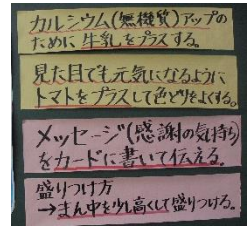 カルシウム(無機質)アップの
ために牛乳をプラスする。
見た目でも元気になるように
トマトをプラスして色どりをよくする。
メッセージ(感謝の気持ち)
をカードに書いて伝える。
盛りつけ方
→まん中を少し高くして盛りつける。